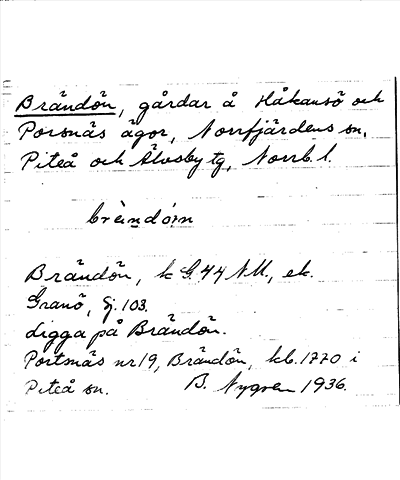 Brändön, gårdar å Håkansö och
Porsnäs ägor, Norrfjärdens sn,
Piteå och Älvsby tg, Norrb. l.
Brändön, k G. 44 NV., ek.
Granö, Gj. 103.
ligga på Brändön.
Portsnäs nr 19, Brändön, kb. 1770 i
Piteå sn. B. Nygren 1936.